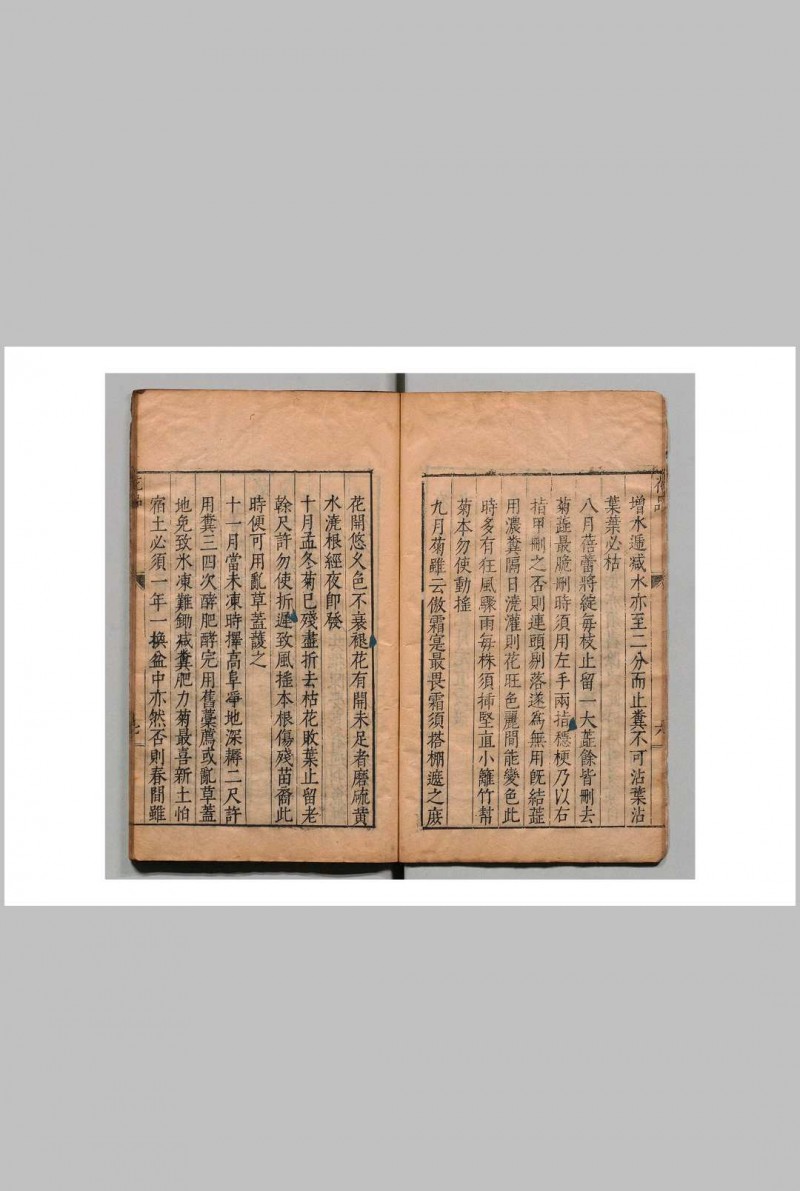 增水遞减水亦至二分而止糞不可沾葉沾
葉葉必枯
八月蓓蕾將綻每枝止留一大蕋餘皆刪去
菊蕋最脆刪時須用左手兩指穩梗乃以右
指甲刪之否則連頭剔落遂爲無用旣結蕋
用濃糞隔日澆灌則花旺色麗間能變色此
時多有狂風驟雨每株須揷堅直小籬竹幫
菊本勿使動搖
九月菊雖云傲霜寔最畏霜須搭棚遮之庻
花開悠久色不衰褪花有開未足者磨硫黄
水澆根經夜即發
十月孟冬菊已殘盡折去枯花敗葉止留老
榦尺許勿使折遲致風搖本根傷殘苗裔此
時便可用亂草蓋護之
十一月當未凍時擇高阜淨地深耨二尺許
用糞三四次酵肥酵完用舊藁薦或亂草蓋
地免致氷凍難鋤减糞肥力菊最喜新土怕
宿土必須一年一換盆中亦然否則春間雖